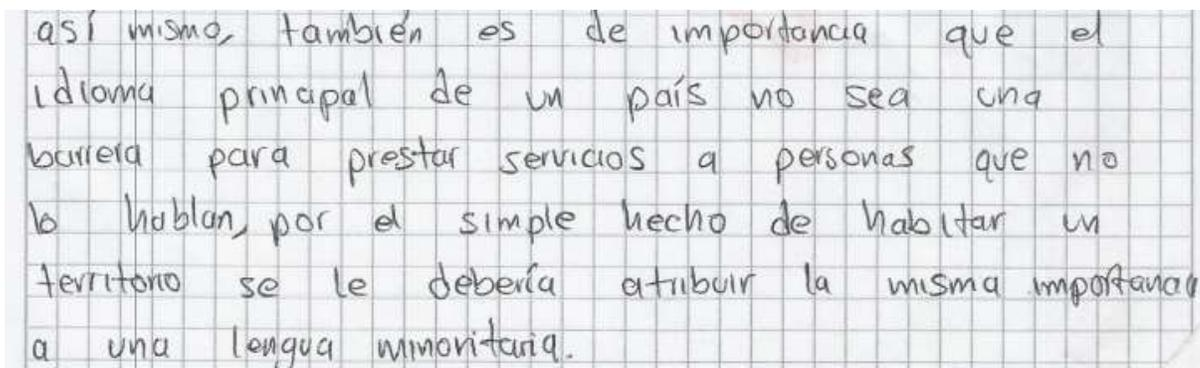 así mismo, también es de importancia que el
idioma principal de un país no sea una
barrera para prestar servicios a personas que no
lo hablan, por el simple hecho de habitar un
territorio se le debería atribuir la misma importancia
a una lengua minoritaria.